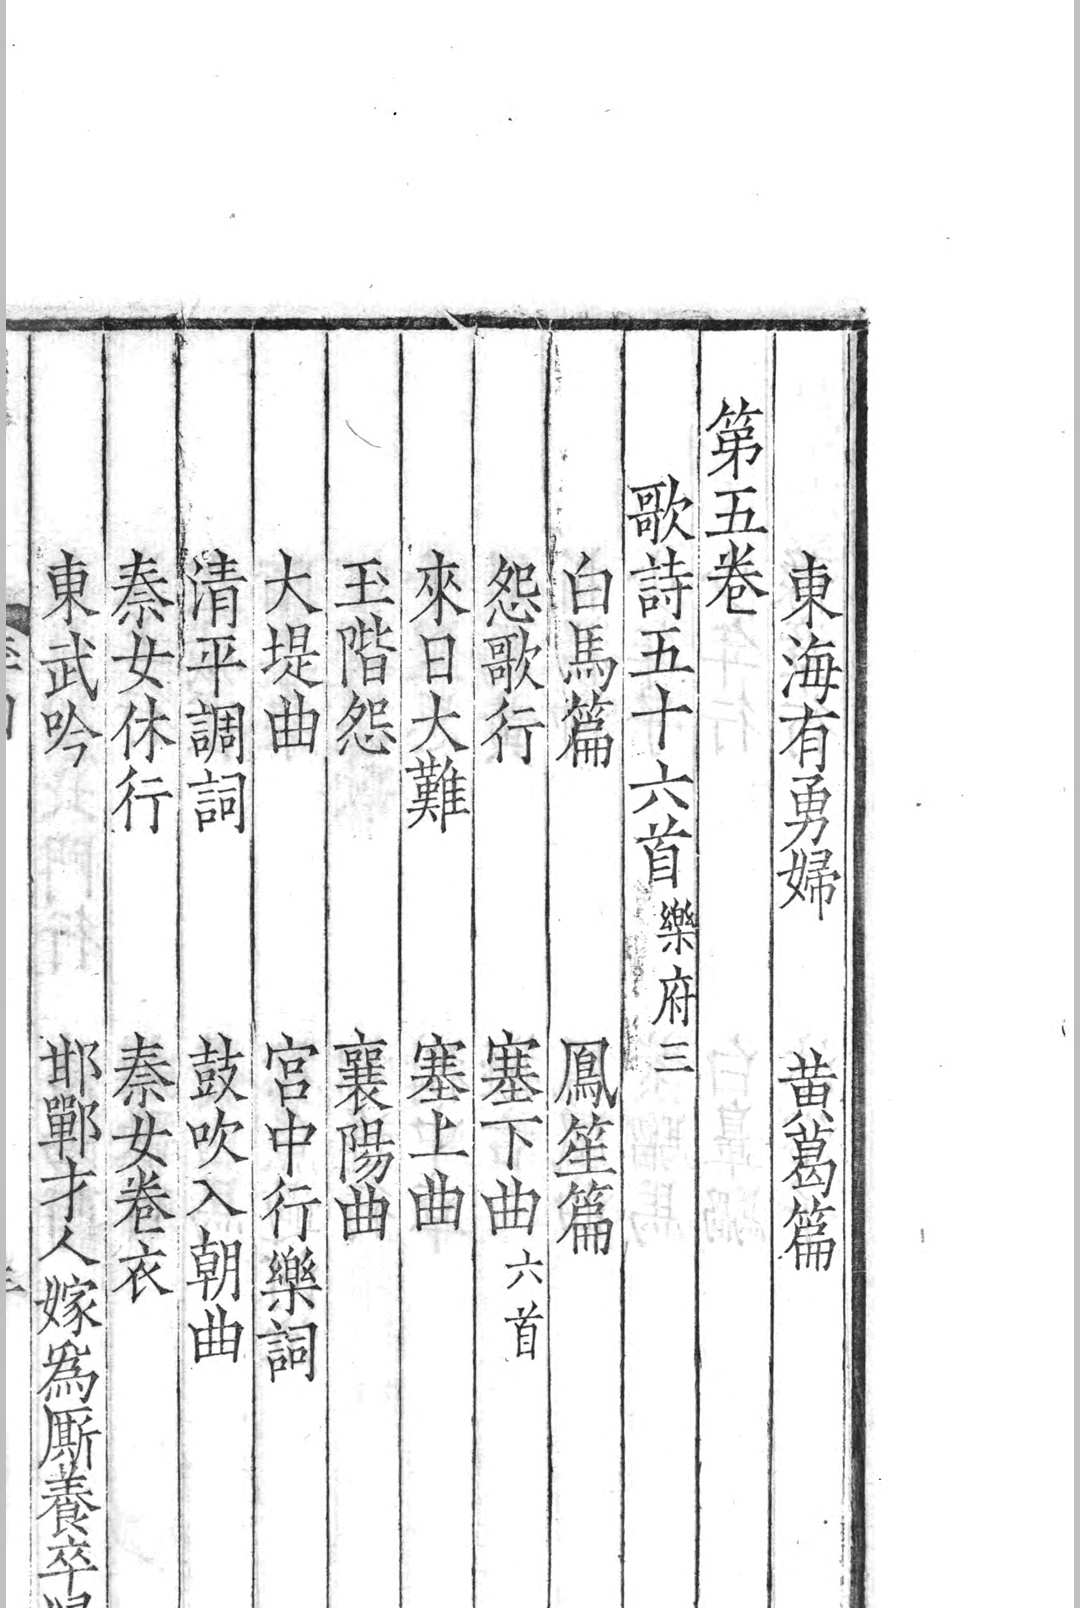 東海有勇婦　黄葛篇
第五卷
歌詩五十六首樂府三
白馬篇　鳳笙篇
怨歌行　塞下曲六首
來日大難　塞上曲
玉階怨　襄陽曲
大堤曲　宮中行樂詞
清平調詞　鼓吹入朝曲
秦女休行　秦女卷衣
東武吟　邯鄲才人嫁爲厮養卒婦